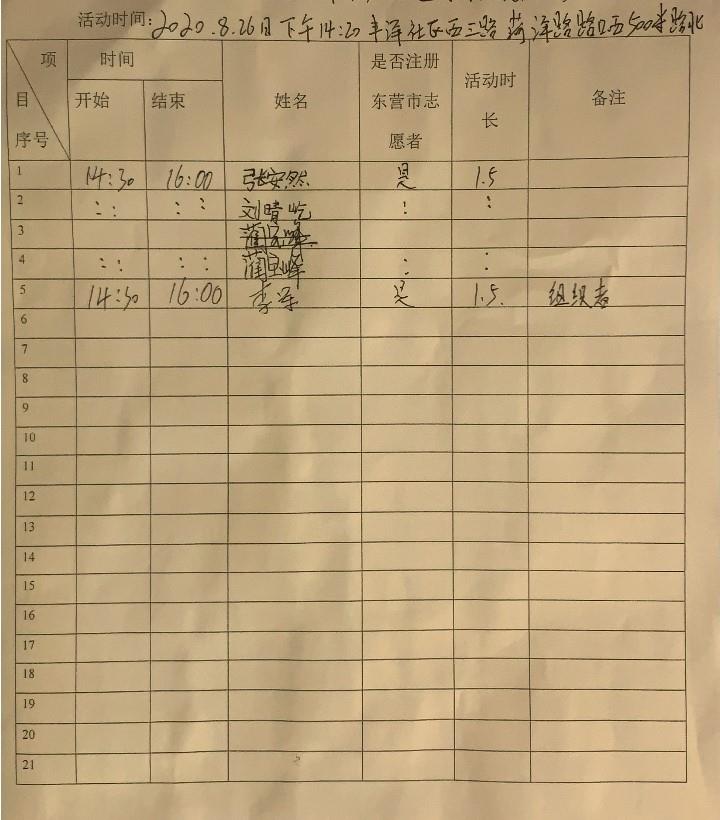 活动时间:2020.8.26日下午14:20丰泽社区西三路菏泽路路口西500米路北
项 时间 是否注册
目 开始 结束 姓名 东营市志 活动时长 备注
序号 愿者
1 14:30 16:00 张安然 是 1.5
2 : : : : 刘晴屹 : :
3
4 : : : : 蔺玉峰 : :
5 14:30 16:00 李军 是 1.5. 组织者
6
7
8
9
10
11
12
13
14
15
16
17
18
19
20
21